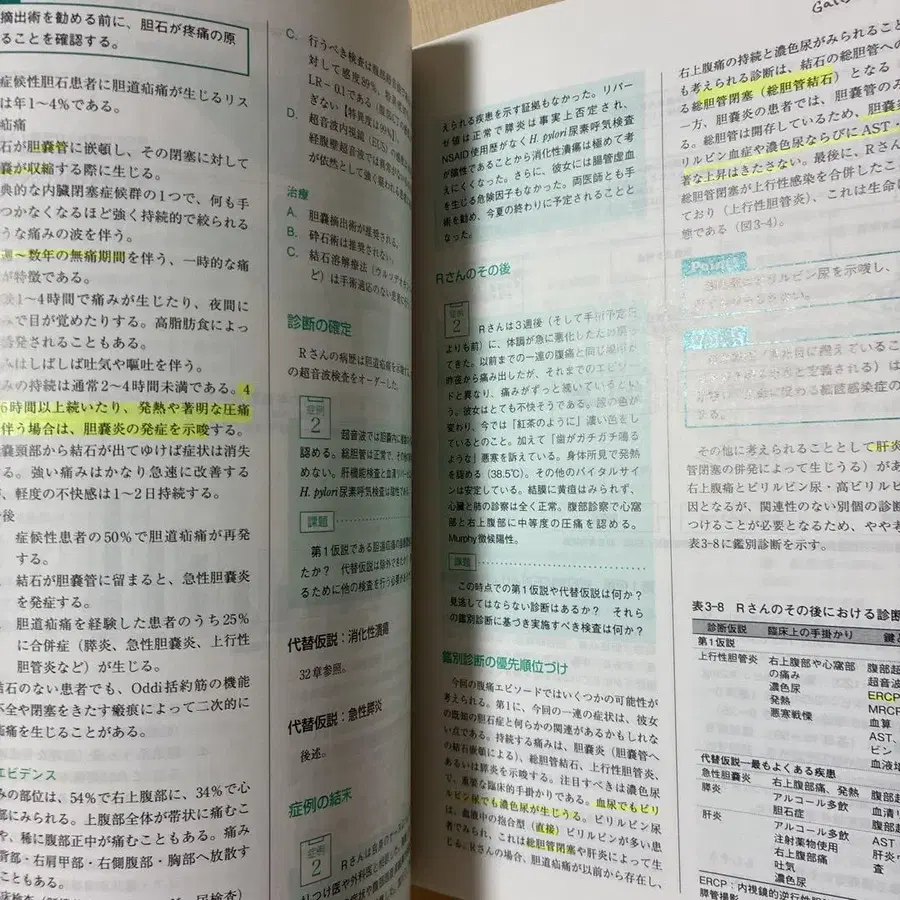 摘出術を勧める前に、胆石が疼痛の原
ることを確認する。
症候性胆石患者に胆道疝痛が生じるリス
は年1〜4%である。
疝痛
石が胆嚢管に嵌頓し、その閉塞に対して
嚢が収縮する際に生じる。
典的な内臓閉塞症候群の1つで、何も手
つかなくなるほど強く持続的で絞られる
うな痛みの波を伴う。
週〜数年の無痛期間を伴う、一時的な痛
が特徴である。
後1〜4時間で痛みが生じたり、夜間に
みで目が覚めたりする。高脂肪食によっ
誘発されることもある。
みはしばしば吐気や嘔吐を伴う。
みの持続は通常2〜4時間未満である。4
6時間以上続いたり、発熱や著明な圧痛
伴う場合は、胆嚢炎の発症を示唆する。
嚢頸部から結石が出てゆけば症状は消失
する。強い痛みはかなり急速に改善する
、軽度の不快感は1〜2日持続する。
後
症候性患者の50%で胆道疝痛が再発
する。
結石が胆嚢管に留まると、急性胆嚢炎
を発症する。
胆道疝痛を経験した患者のうち25%
に合併症（膵炎、急性胆嚢炎、上行性
胆管炎など）が生じる。
結石のない患者でも、Oddi括約筋の機能
不全や閉塞をきたす瘢痕によって二次的に
疝痛を生じることがある。
エビデンス
みの部位は、54%で右上腹部に、34%で心
部にみられる。上腹部全体が帯状に痛むこ
や、稀に腹部正中が痛むこともある。痛み
背部・右肩甲部・右側腹部・胸部へ放散す
こともある。
C. 行うべき検査は腹部超音波
対して感度89%、特異度
LR− 0.1である
ぎない【特異度は99%】。
D. 超音波内視鏡（EUS）の感度
経腹壁超音波では異常が
が依然として強く疑われる患者
治療
A. 胆嚢摘出術が推奨される。
B. 砕石術は推奨されない。
C. 結石溶解療法（ウルソデオキシ
ど）は手術適応のない患者に
診断の確定
Rさんの病歴は胆道疝痛を示唆し
の超音波検査をオーダーした。
症例
2
超音波では胆嚢内に
認める。総胆管は正常で、
めない。肝機能検査と血清リパーゼ
H. pylori尿素呼気検査は陰性である。
課題
第1仮説である胆道疝痛の診断
たか？ 代替仮説は除外できたか？
るために他の検査を行う必要が
代替仮説：消化性潰瘍
32章参照。
代替仮説：急性膵炎
後述。
症例の結末
症例
2
Rさんは自身の
えられる疾患を示す証拠もなかった。リパー
ゼ値は正常で膵炎は事実上否定され、
NSAID使用歴がなくH. pylori尿素呼気検査
が陰性であることから消化性潰瘍は極めて考
えにくくなった。さらに、彼女には腸管虚血
を生じる危険因子もなかった。両医師とも手
術を勧め、今夏の終わりに予定されることと
なった。
Rさんのその後
症例
2
Rさんは3週後（そして手術予定日
よりも前）に、体調が急に悪化したため戻っ
てきた。以前までの一連の腹痛と同じ場所が
昨夜から痛み出したが、それまでのエピソー
ドと異なり、痛みがずっと続いているとい
う。彼女はとても不快そうである。尿の色が
変わり、今では「紅茶のように」濃い色をし
ているとのこと。加えて「歯がガチガチ鳴る
ような」悪寒を訴えている。身体所見で発熱
を認める（38.5℃）。その他のバイタルサイ
ンは安定している。結膜に黄疸はみられず、
心臓と肺の診察は全く正常。腹部診察で心窩
部と右上腹部に中等度の圧痛を認める。
Murphy徴候陽性。
課題
この時点での第1仮説や代替仮説は何か？
見逃してはならない診断はあるか？ それら
の鑑別診断に基づき実施すべき検査は何か？
鑑別診断の優先順位づけ
今回の腹痛エピソードではいくつかの可能性が
考えられる。第1に、今回の一連の症状は、彼女
の既知の胆石症と何らかの関連があるかもしれな
い点である。持続する痛みは、胆嚢炎（胆嚢管へ
の結石嵌頓による）、総胆管結石、上行性胆管炎、
あるいは膵炎を示唆する。注目すべきは濃色尿
で、重要な臨床的手掛かりである。血尿でもビリ
ルビン尿でも濃色尿が生じうる。ビリルビン尿
は、血液中の抱合型（直接）ビリルビンが多い患
者でみられ、これは総胆管閉塞や肝炎によって生
じる。Rさんの場合、胆道疝痛が以前から存在し、
右上腹痛の持続と濃色尿がみられること
も考えられる診断は、結石の総胆管への
る総胆管閉塞（総胆管結石）となる
一方、胆嚢炎の患者では、胆嚢管のみ
る。総胆管は開存しているため、胆嚢
リルビン血症や濃色尿ならびにAST・
著な上昇はきたさない。最後に、Rさん
総胆管閉塞が上行性感染を合併したこ
ており（上行性胆管炎）、これは生命に
態である（図3-4）。
Point
その他に考えられることとして肝炎
管閉塞の併発によって生じうる）があ
右上腹痛とビリルビン尿・高ビリルビ
因となるが、関連性のない別個の診断
つけることが必要となるため、やや考
表3-8に鑑別診断を示す。
表3-8 Rさんのその後における診断
診断仮説 臨床上の手掛かり
第1仮説
上行性胆管炎 右上腹部や心窩部
の痛み
濃色尿
発熱
悪寒戦慄
腹部超
超音波
ERCP
MRCP
血算
AST、
ビン
血液培
代替仮説―最もよくある疾患
急性胆嚢炎 右上腹部痛、発熱 腹部超
膵炎 アルコール多飲 血清リ
胆石症 腹部超
肝炎 アルコール多飲 AST、
注射薬物使用
右上腹部痛
吐気
濃色尿
ERCP：内視鏡的逆行性胆
膵管撮影